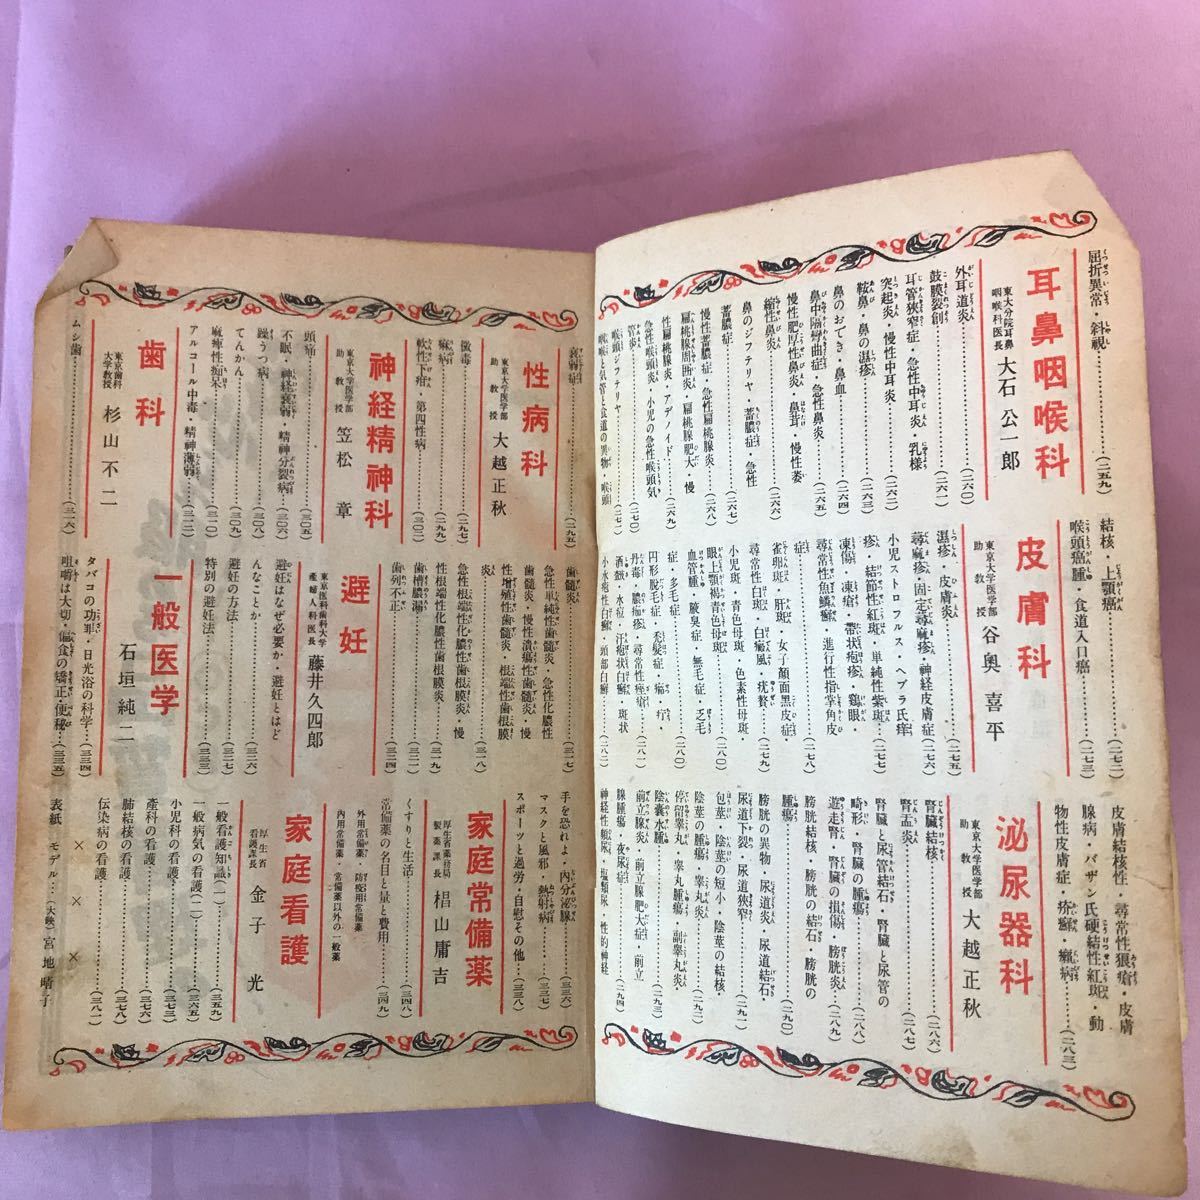 屈折異常・斜視………(二五九)
耳鼻咽喉科
東大分院耳鼻
咽喉科医長
大石公一郎
外耳道炎………(二六〇)
鼓膜裂創………(二六一)
耳管狭窄症・急性中耳炎・乳様
突起炎・慢性中耳炎………(二六二)
鞍鼻・鼻の湿疹………(二六三)
鼻のおでき・鼻血………(二六四)
鼻中隔彎曲症・急性鼻炎………(二六五)
慢性肥厚性鼻炎・鼻茸・慢性萎
縮性鼻炎………(二六六)
鼻のジフテリヤ・蓄膿症・急性
蓄膿症………(二六七)
慢性蓄膿症・急性扁桃腺炎………(二六八)
扁桃腺周囲炎・扁桃腺肥大・慢
性扁桃腺炎・アデノイド………(二六九)
急性喉頭炎・小児の急性喉頭気
管炎………(二七〇)
喉頭ジフテリヤ………(二七一)
咽喉と気管と食道の異物・喉頭
結核・上顎癌………(二七二)
喉頭癌腫・食道入口癌………(二七三)
皮膚科
東京大学医学部
助教授
谷奥喜平
湿疹・皮膚炎………(二七五)
蕁麻疹・固定蕁麻疹・神経皮膚症………(二七六)
小児ストロフルス・ヘブラ氏痒
疹・結節性紅斑・単純性紫斑………(二七七)
凍傷・凍瘡・帯状疱疹・鶏眼・
尋常性魚鱗癬・進行性指掌角皮
症………(二七八)
雀卵斑・肝斑・女子顔面黒皮症・
尋常性白斑・白癜風・疣贅………(二七九)
小児斑・青色母斑・色素性母斑・
眼上顎褐青色母斑………(二八〇)
血管腫・腋臭症・無毛症・乏毛
症・多毛症………
円形脱毛症・禿髪症・癤・疔・
丹毒・膿痂疹・尋常性痤瘡………(二八一)
酒皶・水痘・汗疱状白癬・斑状
小水疱性白癬・頭部白癬………(二八二)
皮膚結核性・尋常性狼瘡・皮膚
腺病・バザン氏硬結性紅斑・動
物性皮膚症・疥癬・癩病………(二八三)
泌尿器科
東京大学医学部
助教授
大越正秋
腎臓結核………(二八六)
腎盂炎………(二八七)
腎臓と尿管結石・腎臓と尿管の
畸形・腎臓の腫瘍………(二八八)
遊走腎・腎臓の損傷・膀胱炎………
膀胱結核・膀胱の結石・膀胱の
腫瘍………(二九〇)
膀胱の異物・尿道炎・尿道結石・
尿道下裂・尿道狭窄………(二九一)
包茎・陰茎の短小・陰茎の結核・
陰茎の腫瘍・睾丸炎………(二九二)
停留睾丸・睾丸腫瘍・副睾丸炎・
陰嚢水腫………(二九三)
前立腺炎・前立腺肥大症・前立
腺腫瘍・夜尿症………(二九四)
神経性頻尿・塩類尿・性的神経
衰弱症………(二九五)
性病科
東京大学医学部
助教授
大越正秋
黴毒………(二九七)
麻病………(二九九)
軟性下疳・第四性病………(三〇二)
神経精神科
東京大学医学部
助教授
笠松章
頭痛………(三〇五)
不眠・神経衰弱・精神分裂病………(三〇六)
躁うつ病………(三〇八)
てんかん………(三〇九)
麻痺性痴呆………(三一〇)
アルコール中毒・精神薄弱………(三一二)
歯科
東京歯科
大学教授
杉山不二
ムシ歯………(三一六)
歯髄炎………(三一七)
急性単純性歯髄炎・急性化膿性
歯髄炎・慢性潰瘍性歯髄炎・慢
性増殖性歯髄炎・根端性歯根膜
炎………(三一八)
急性根端性化膿性歯根膜炎・慢
性根端性化膿性歯根膜炎………(三一九)
歯槽膿漏………(三二〇)
歯列不正………(三二四)
避妊
東京医科歯科大学
産婦人科医長
藤井久四郎
避妊はなぜ必要か・避妊とはど
んなことか………(三二六)
避妊の方法………(三二七)
特別の避妊法………(三三三)
一般医学
石垣純二
タバコの功罪・日光浴の科学………(三三四)
咀嚼は大切・偏食の矯正・便秘………(三三五)
手を恐れよ・内分泌腺………(三三六)
マスクと風邪・熱射病………(三三七)
スポーツと過労・自慰その他………(三三八)
家庭常備薬
厚生省薬務局
製薬課長
椙山庸吉
くすりと生活………(三四八)
常備薬の名目と量と費用………(三四九)
外用常備薬・防疫用常備薬
内用常備薬・常備薬以外の一般薬
家庭看護
厚生省
看護課長
金子光
一般看護知識(一)………(三五九)
一般病気の看護(二)………(三六五)
小児科の看護………(三七三)
産科の看護………(三七六)
肺結核の看護………(三七八)
伝染病の看護………(三八一)
× × ×
表紙 モデル…(大映)宮地晴子